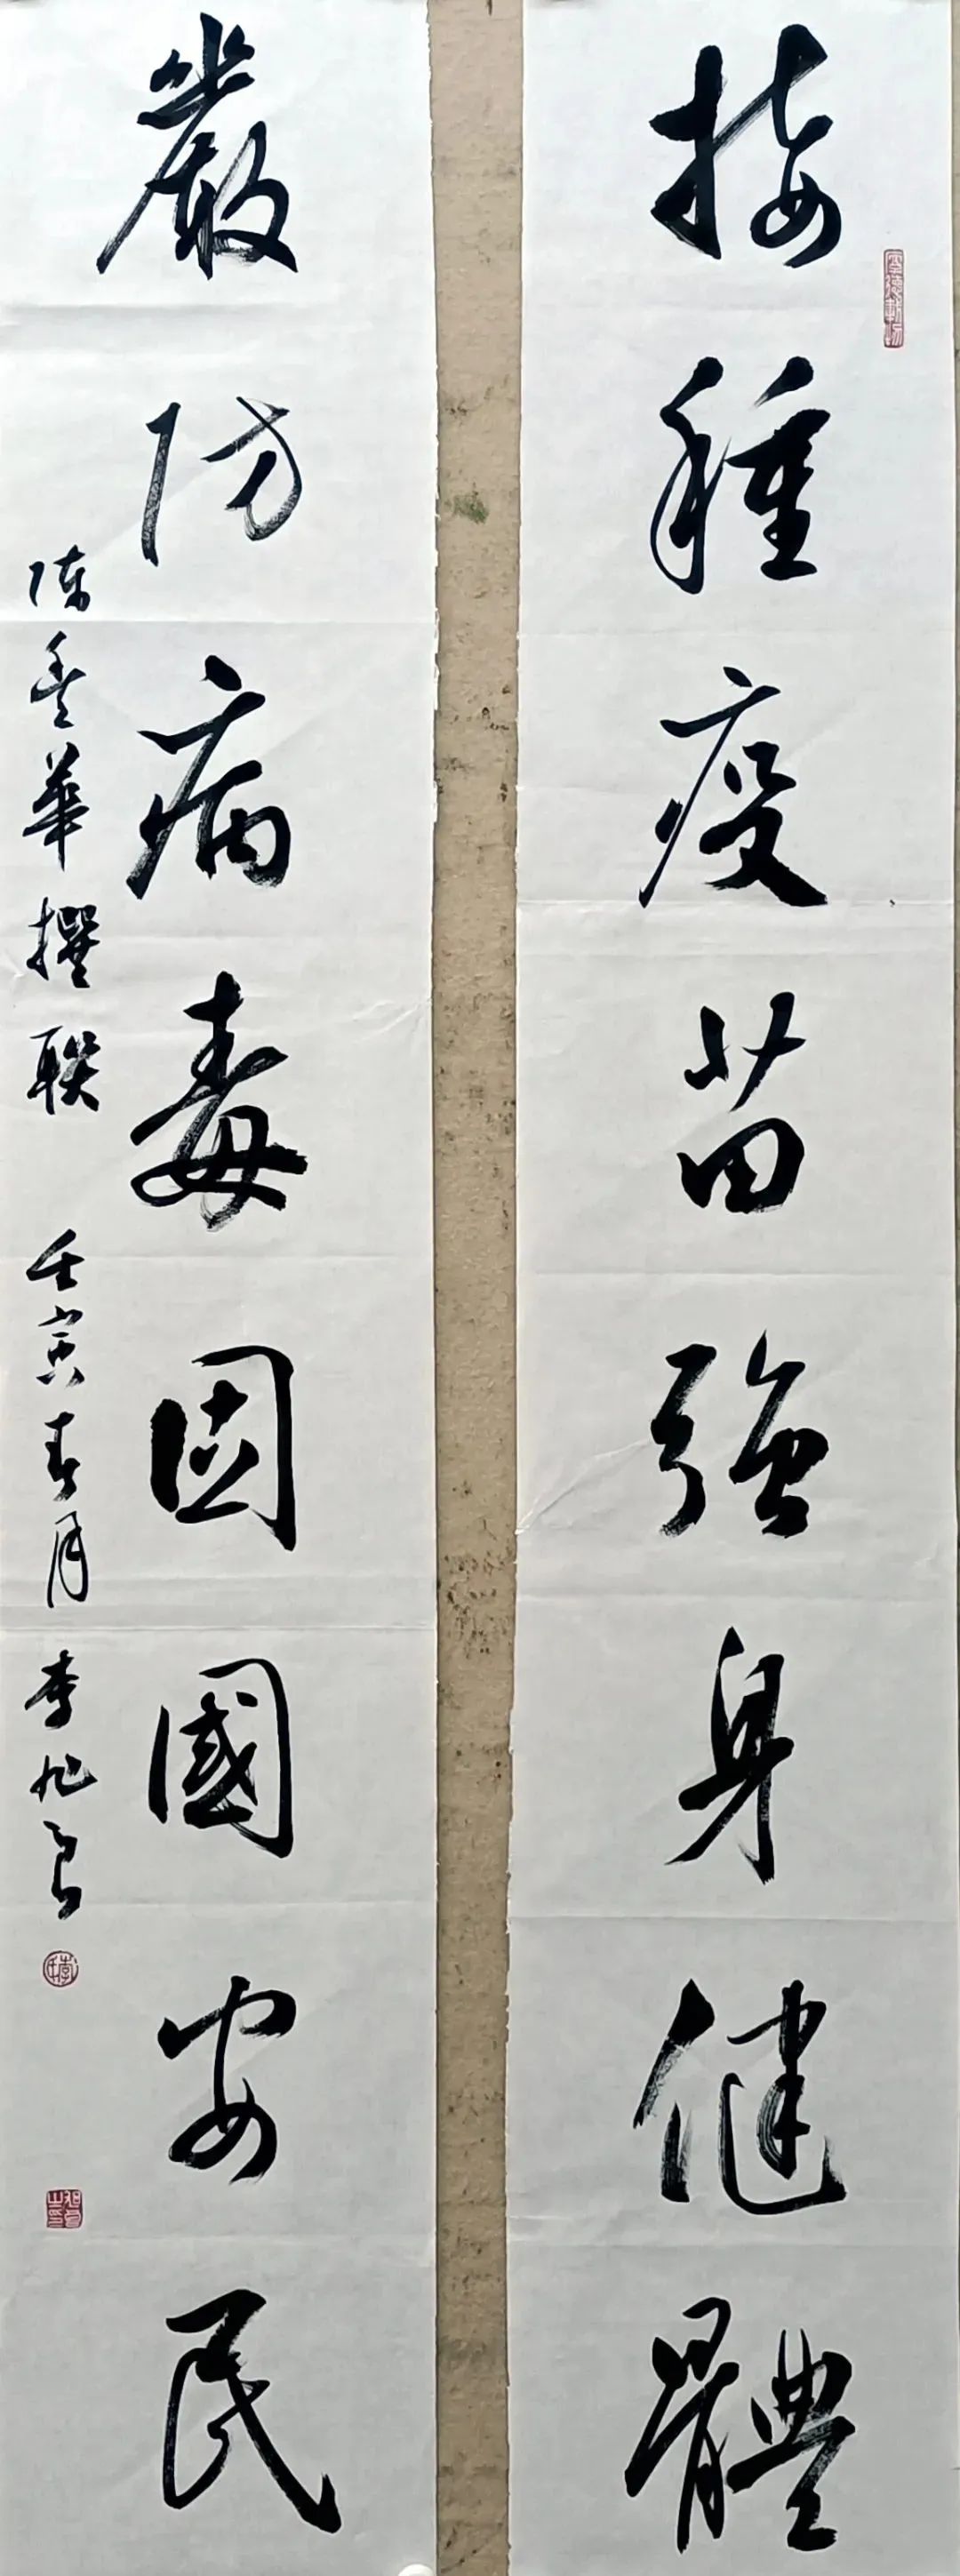 接種疫苗強身健體
嚴防病毒固國安民
陳秀華撰聯 壬寅春月 李旭春